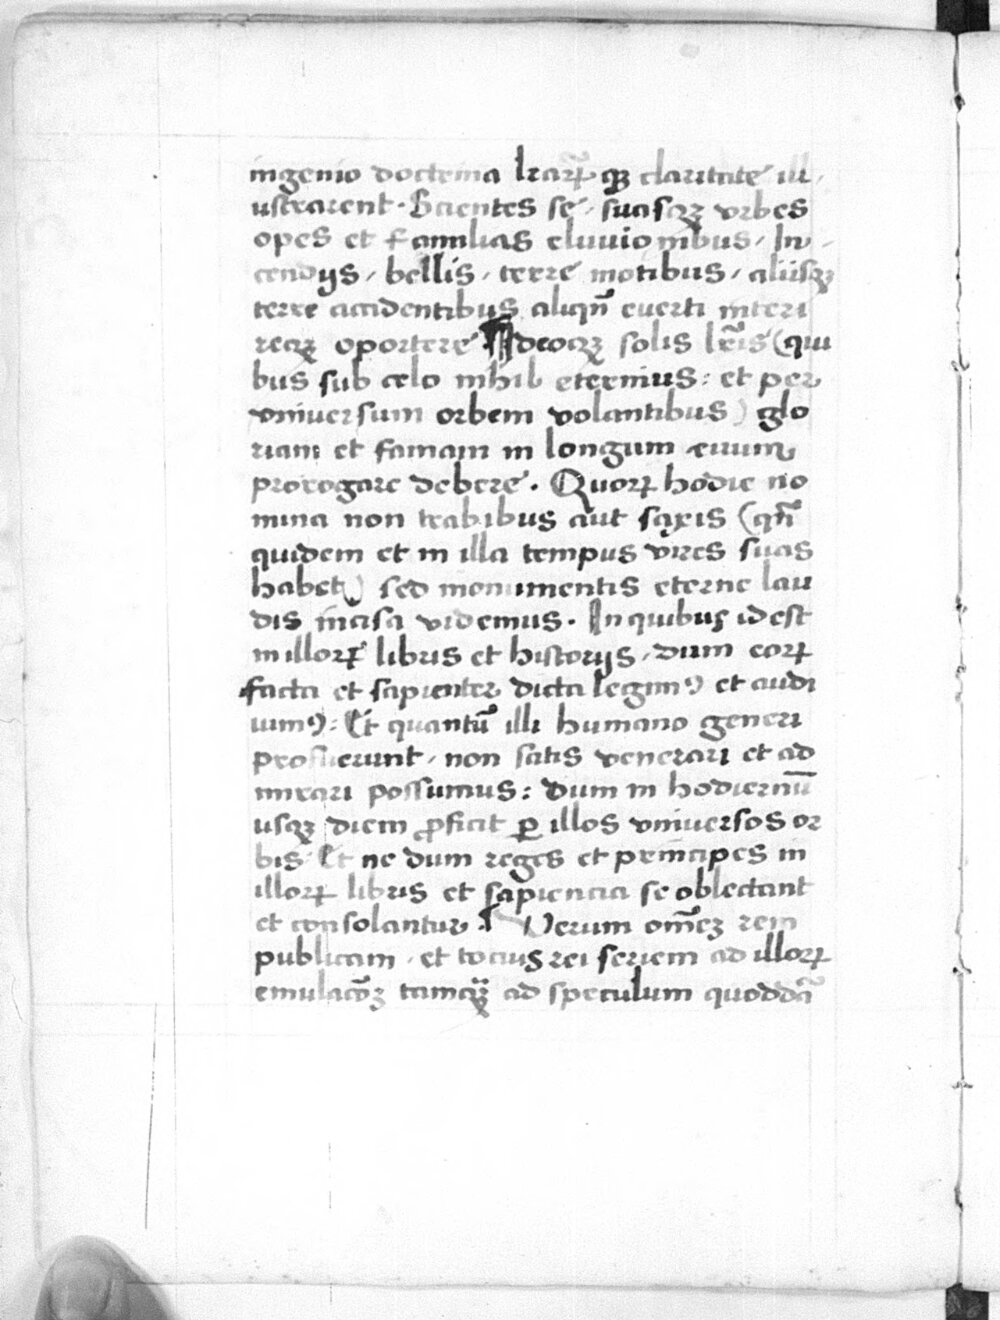 ingenio doctrina lr̄arꝝ qꝫ claritate ill/
ustrarent. Scientes se / suasqꝫ vrbes
opes et familias eluuionibus / In/
cendijs / bellis / terre motibus / alijsqꝫ
terre accidentibus aliqn̄ euerti interi
reqꝫ oportere. Ideoqꝫ solis lr̄is (qui
bus sub celo nihil eternius: et per
vniuersum orbem volantibus) glo
riam et famam in longum euum
prorogare debere. Quorꝝ hodie no
mina non trabibus aut saxis (qn̄
quidem et in illa tempus vires suas
habet) sed monumentis eterne lau
dis incisa videmus. In quibus idest
in illorꝝ libris et historijs / dum eorꝝ
facta et sapienter dicta legimꝰ et audi
uimꝰ: Et quantū illi humano generi
profuerunt / non satis venerari et ad
mirari possumus: Dum in hodiernū
usqꝫ diem ꝓficit ꝑ illos vniuersos or
bis. Et ne dum reges et principes in
illorꝝ libris et sapiencia se oblectant
et consolantur. Verum om̄eꝫ rem
publicam / et tocius rei seriem ad illorꝝ
emulacōꝫ tamqꝫ ad speculum quoddā